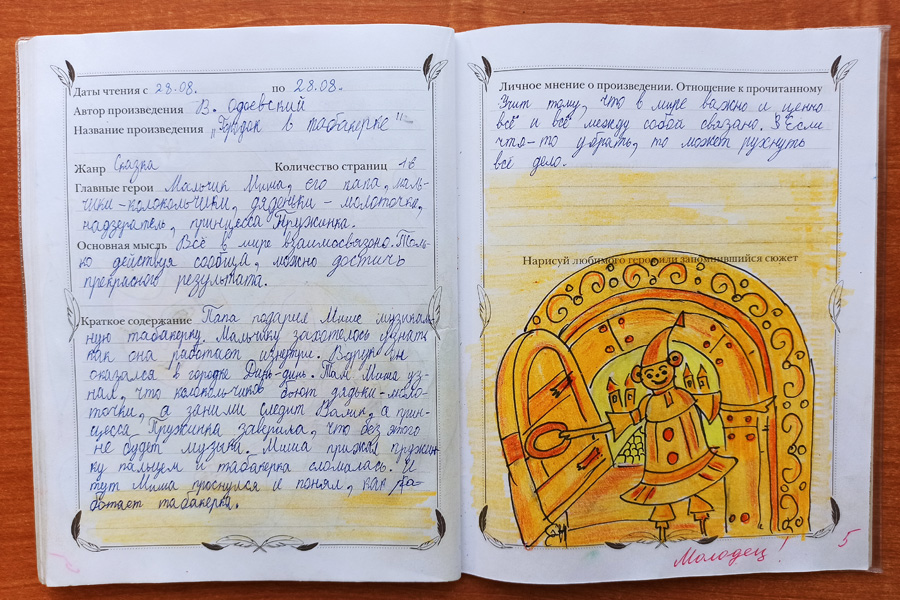 Даты чтения с 28.08. по 28.08.
Автор произведения В. Одоевский
Название произведения „Городок в табакерке"
Жанр Сказка Количество страниц 16
Главные герои Мальчик Миша, его папа, маль-
чики-колокольчики, дяденьки-молоточки,
надзератель, принцесса Пружинка.
Основная мысль Всё в мире взаимосвязано. Толь-
ко действуя сообща, можно достичь
прекрасного результата.
Краткое содержание Папа подарил Мише музикаль-
ную табакерку. Мальчику захотелось узнать
как она работает изнутри. Вдруг он
оказался в городке Динь-динь. Там Миша уз-
нал, что колокольчиков бьют дядьки-моло-
точки, а за ними следит Валик, а прин-
цесса Пружинка заверила, что без этого
не будет музыки. Миша прижал пружин-
ку пальцем и табакерка сломалась. И
тут Миша проснулся и понял, как ра-
ботает табакерка.
Личное мнение о произведении. Отношение к прочитанному
Учит тому, что в мире важно и ценно
всё и всё между собой связано. Если
что-то убрать, то может рухнуть
всё дело.
Нарисуй любимого героя или запомнившийся сюжет
Молодец! 5